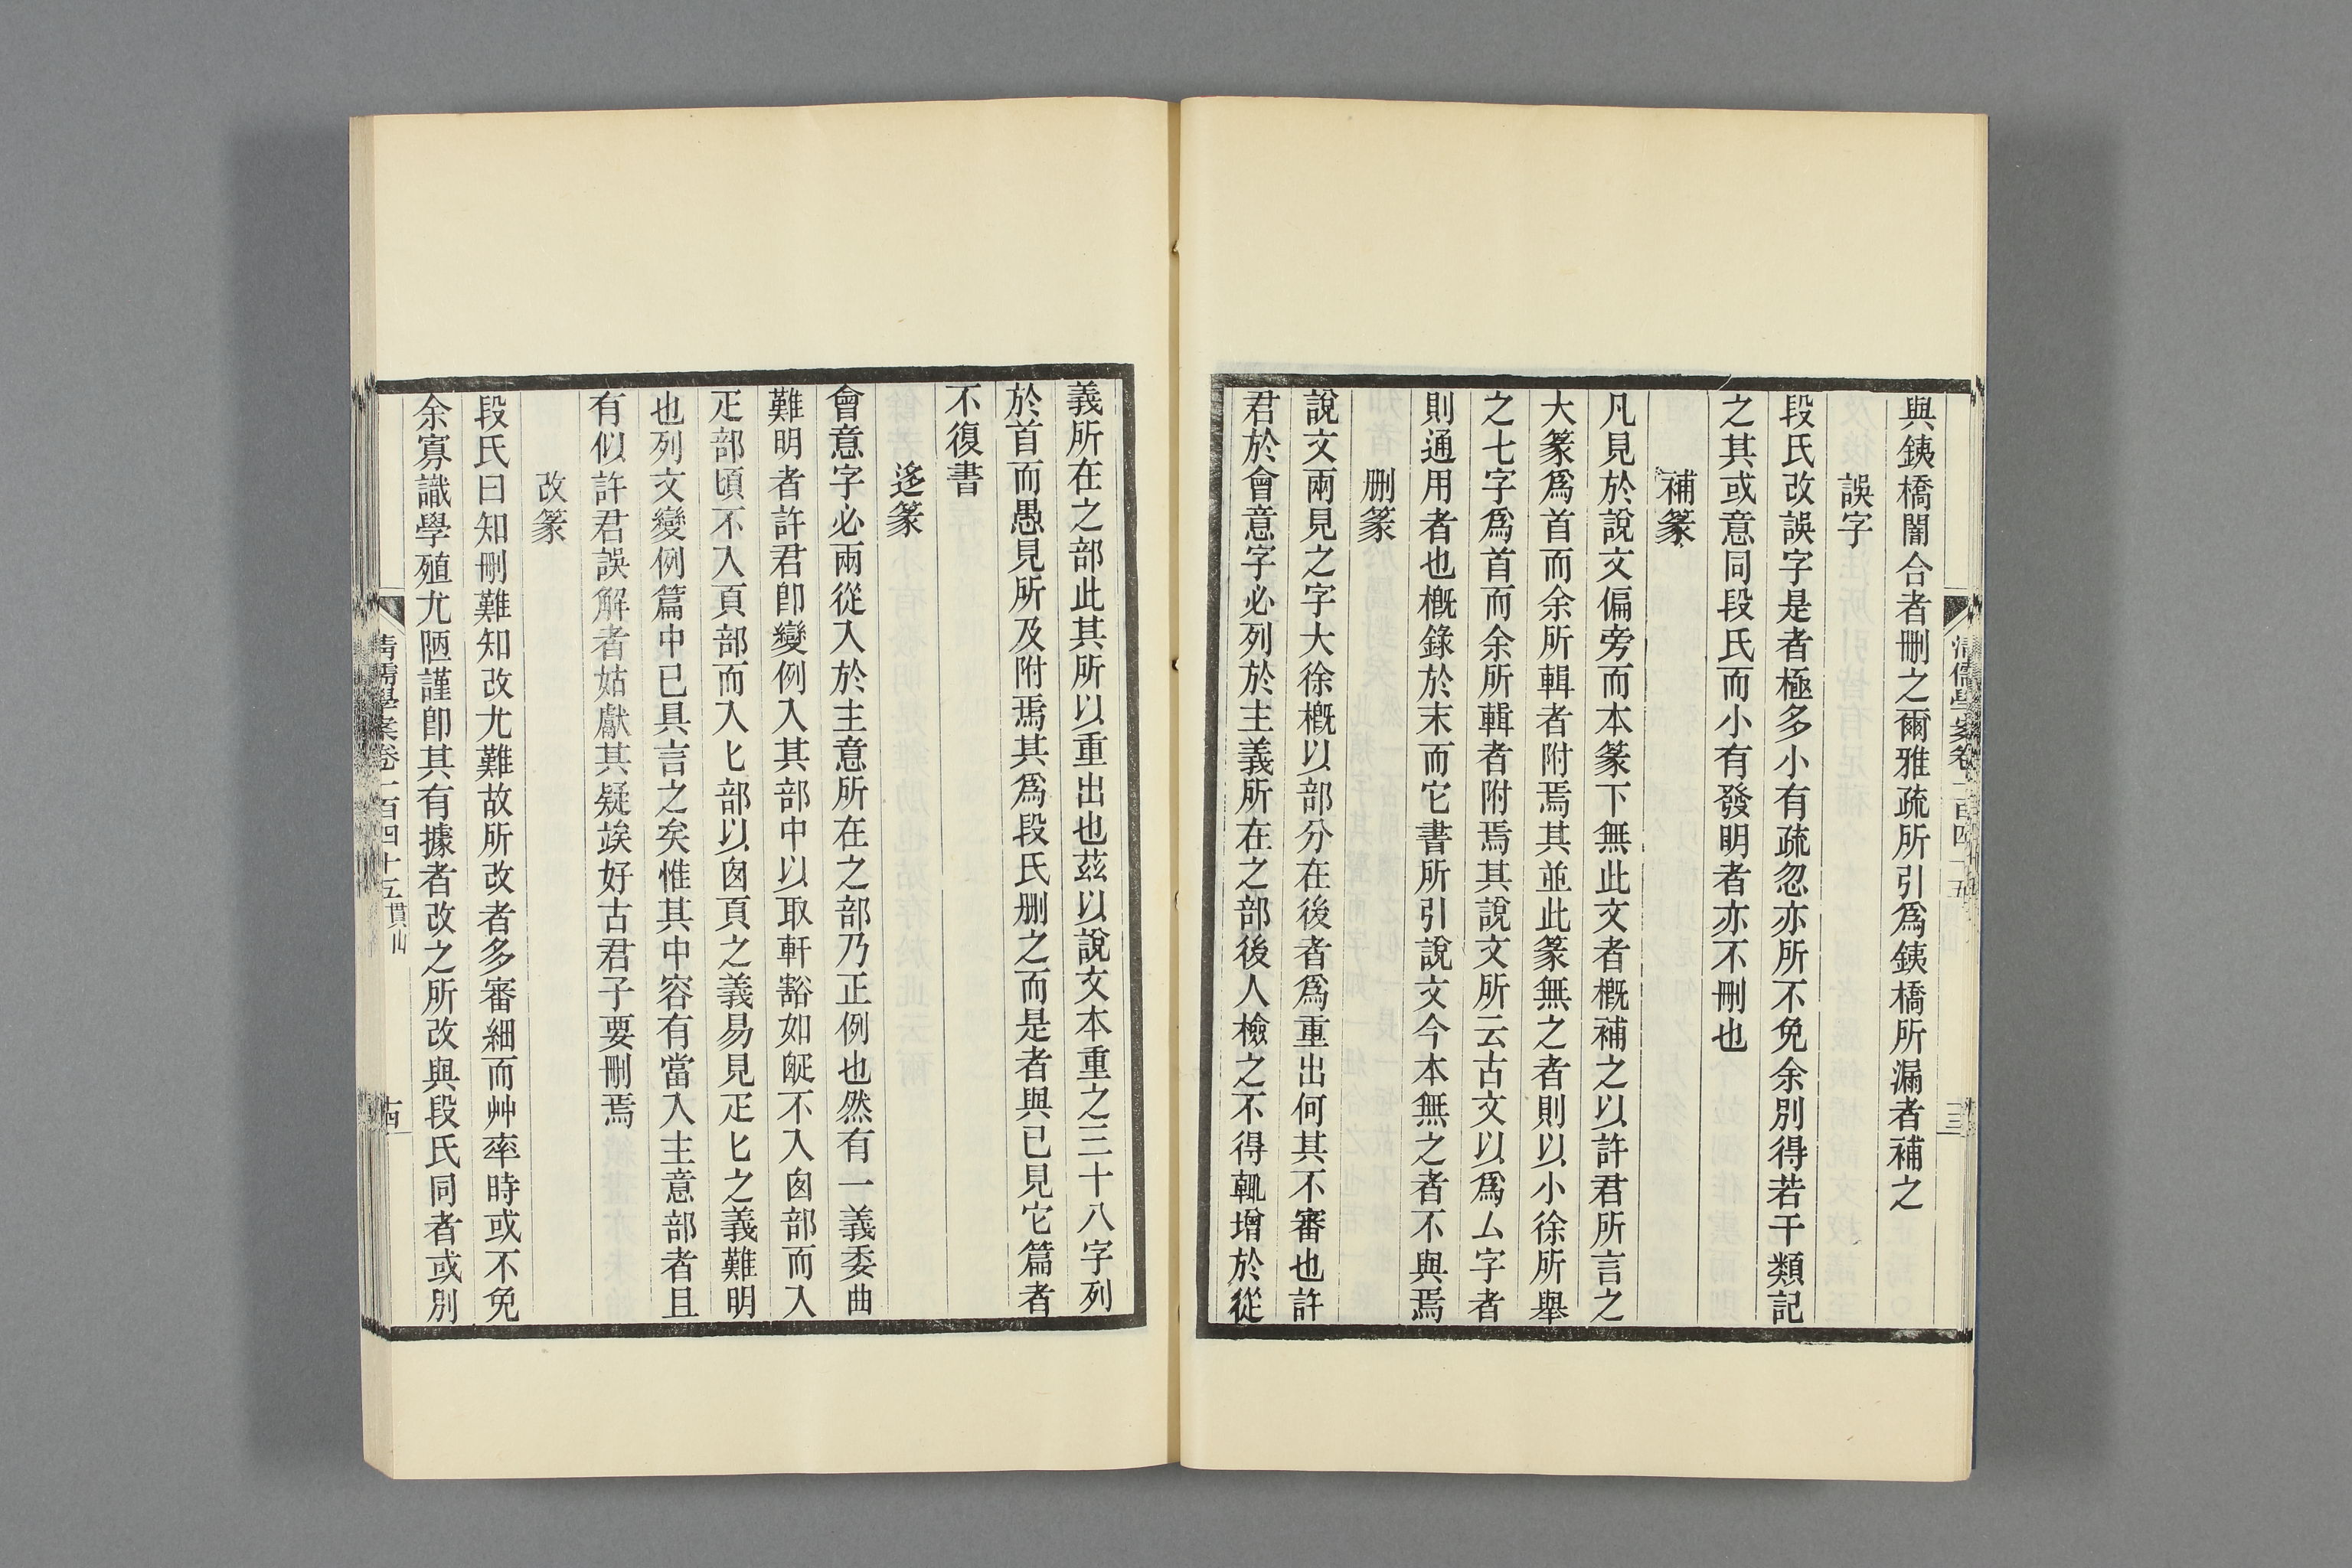 與銕橋闇合者刪之爾雅疏所引爲銕橋所漏者補之
誤字
段氏改誤字是者極多小有疏忽亦所不免余別得若干類記
之其或意同段氏而小有發明者亦不刪也
補篆
凡見於說文偏旁而本篆下無此文者槪補之以許君所言之
大篆爲首而余所輯者附焉其並此篆無之者則以小徐所舉
之七字爲首而余所輯者附焉其說文所云古文以爲厶字者
則通用者也槪錄於末而它書所引說文今本無之者不與焉
刪篆
說文兩見之字大徐槪以部分在後者爲重出何其不審也許
君於會意字必列於主義所在之部後人檢之不得輒增於從
清儒學案卷一百四十五
三
義所在之部此其所以重出也茲以說文本重之三十八字列
於首而愚見所及附焉其爲段氏刪之而是者與已見它篇者
不復書
迻篆
會意字必兩從入於主意所在之部乃正例也然有一義委曲
難明者許君卽變例入其部中以取軒豁如𤴓不入囪部而入
疋部頃不入頁部而入匕部以囪頁之義易見疋匕之義難明
也列文變例篇中已具言之矣惟其中容有當入主意部者且
有似許君誤解者姑獻其疑竢好古君子要刪焉
改篆
段氏曰知刪難知改尤難故所改者多審細而艸率時或不免
余寡識學殖尤陋謹卽其有據者改之所改與段氏同者或別
清儒學案卷一百四十五 貫山
十四